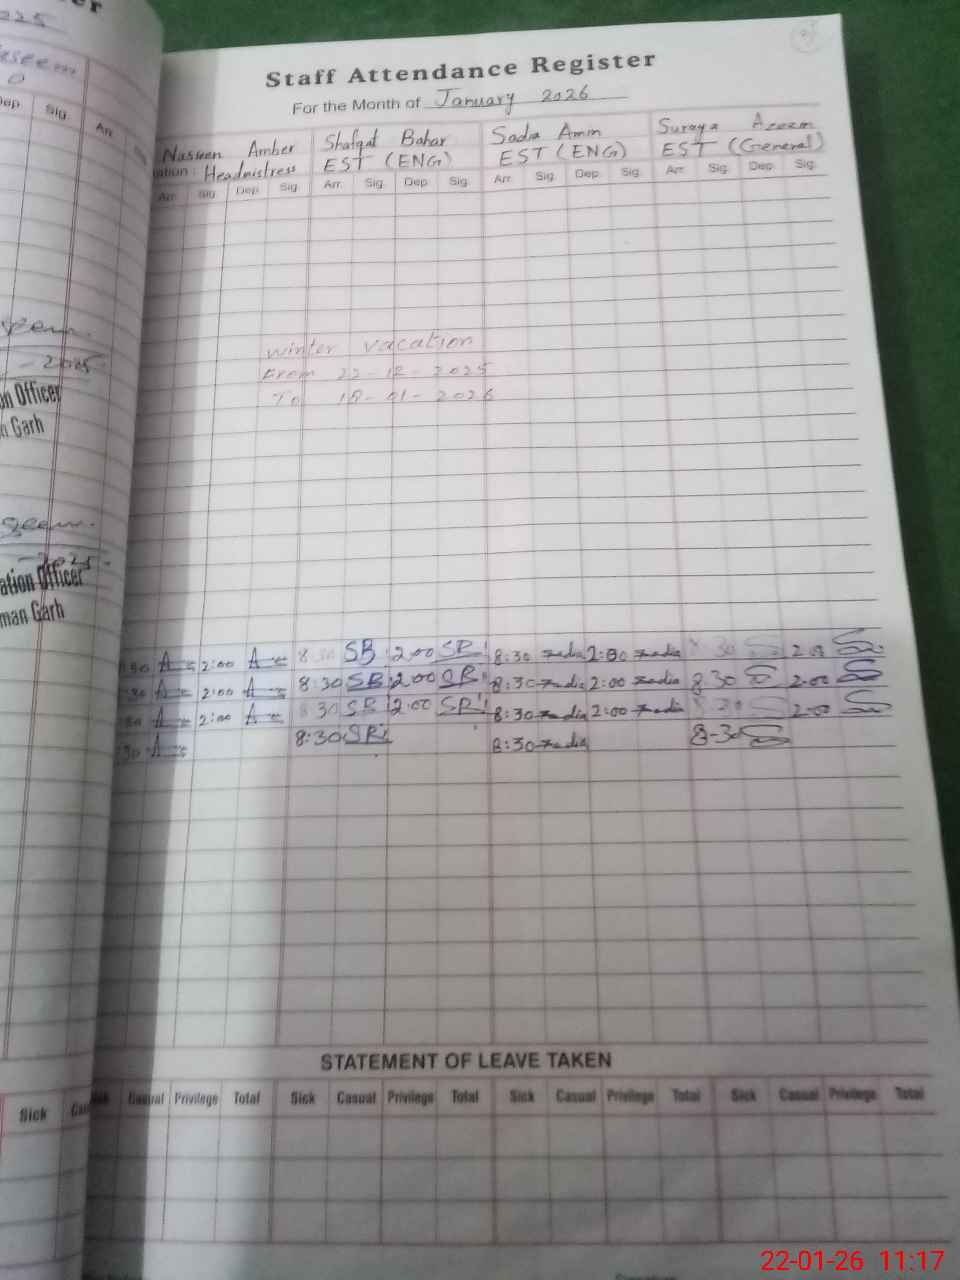 er
2025
Staff Attendance Register
For the Month of January 2026
Naseem Amber Shafqat Bahar Sadia Amin Suraya Azeem
ation: Headmistress EST (ENG) EST (ENG) EST (General)
Dep Sig Arr
Arr. Sig Dep Sig Arr. Sig. Dep. Sig. Arr. Sig. Dep. Sig. Arr. Sig. Dep. Sig.
winter vacation
From 22-12-2025
To 18-01-2026
- 2025
on Officer
n Garh
2025
ation Officer
man Garh
:30 2:00 8:30 SB 2:00 SB 8:30 Sadia 2:00 Sadia 8:30 2:00
:30 2:00 8:30 SB 2:00 SB 8:30 Sadia 2:00 Sadia 8:30 2:00
:30 2:00 8:30 SB 2:00 SB 8:30 Sadia 2:00 Sadia 8:30 2:00
:30 8:30 SB 8:30 Sadia 8-30
STATEMENT OF LEAVE TAKEN
Sick Casual Privilege Total Sick Casual Privilege Total Sick Casual Privilege Total Sick Casual Privilege Total
22-01-26 11:17